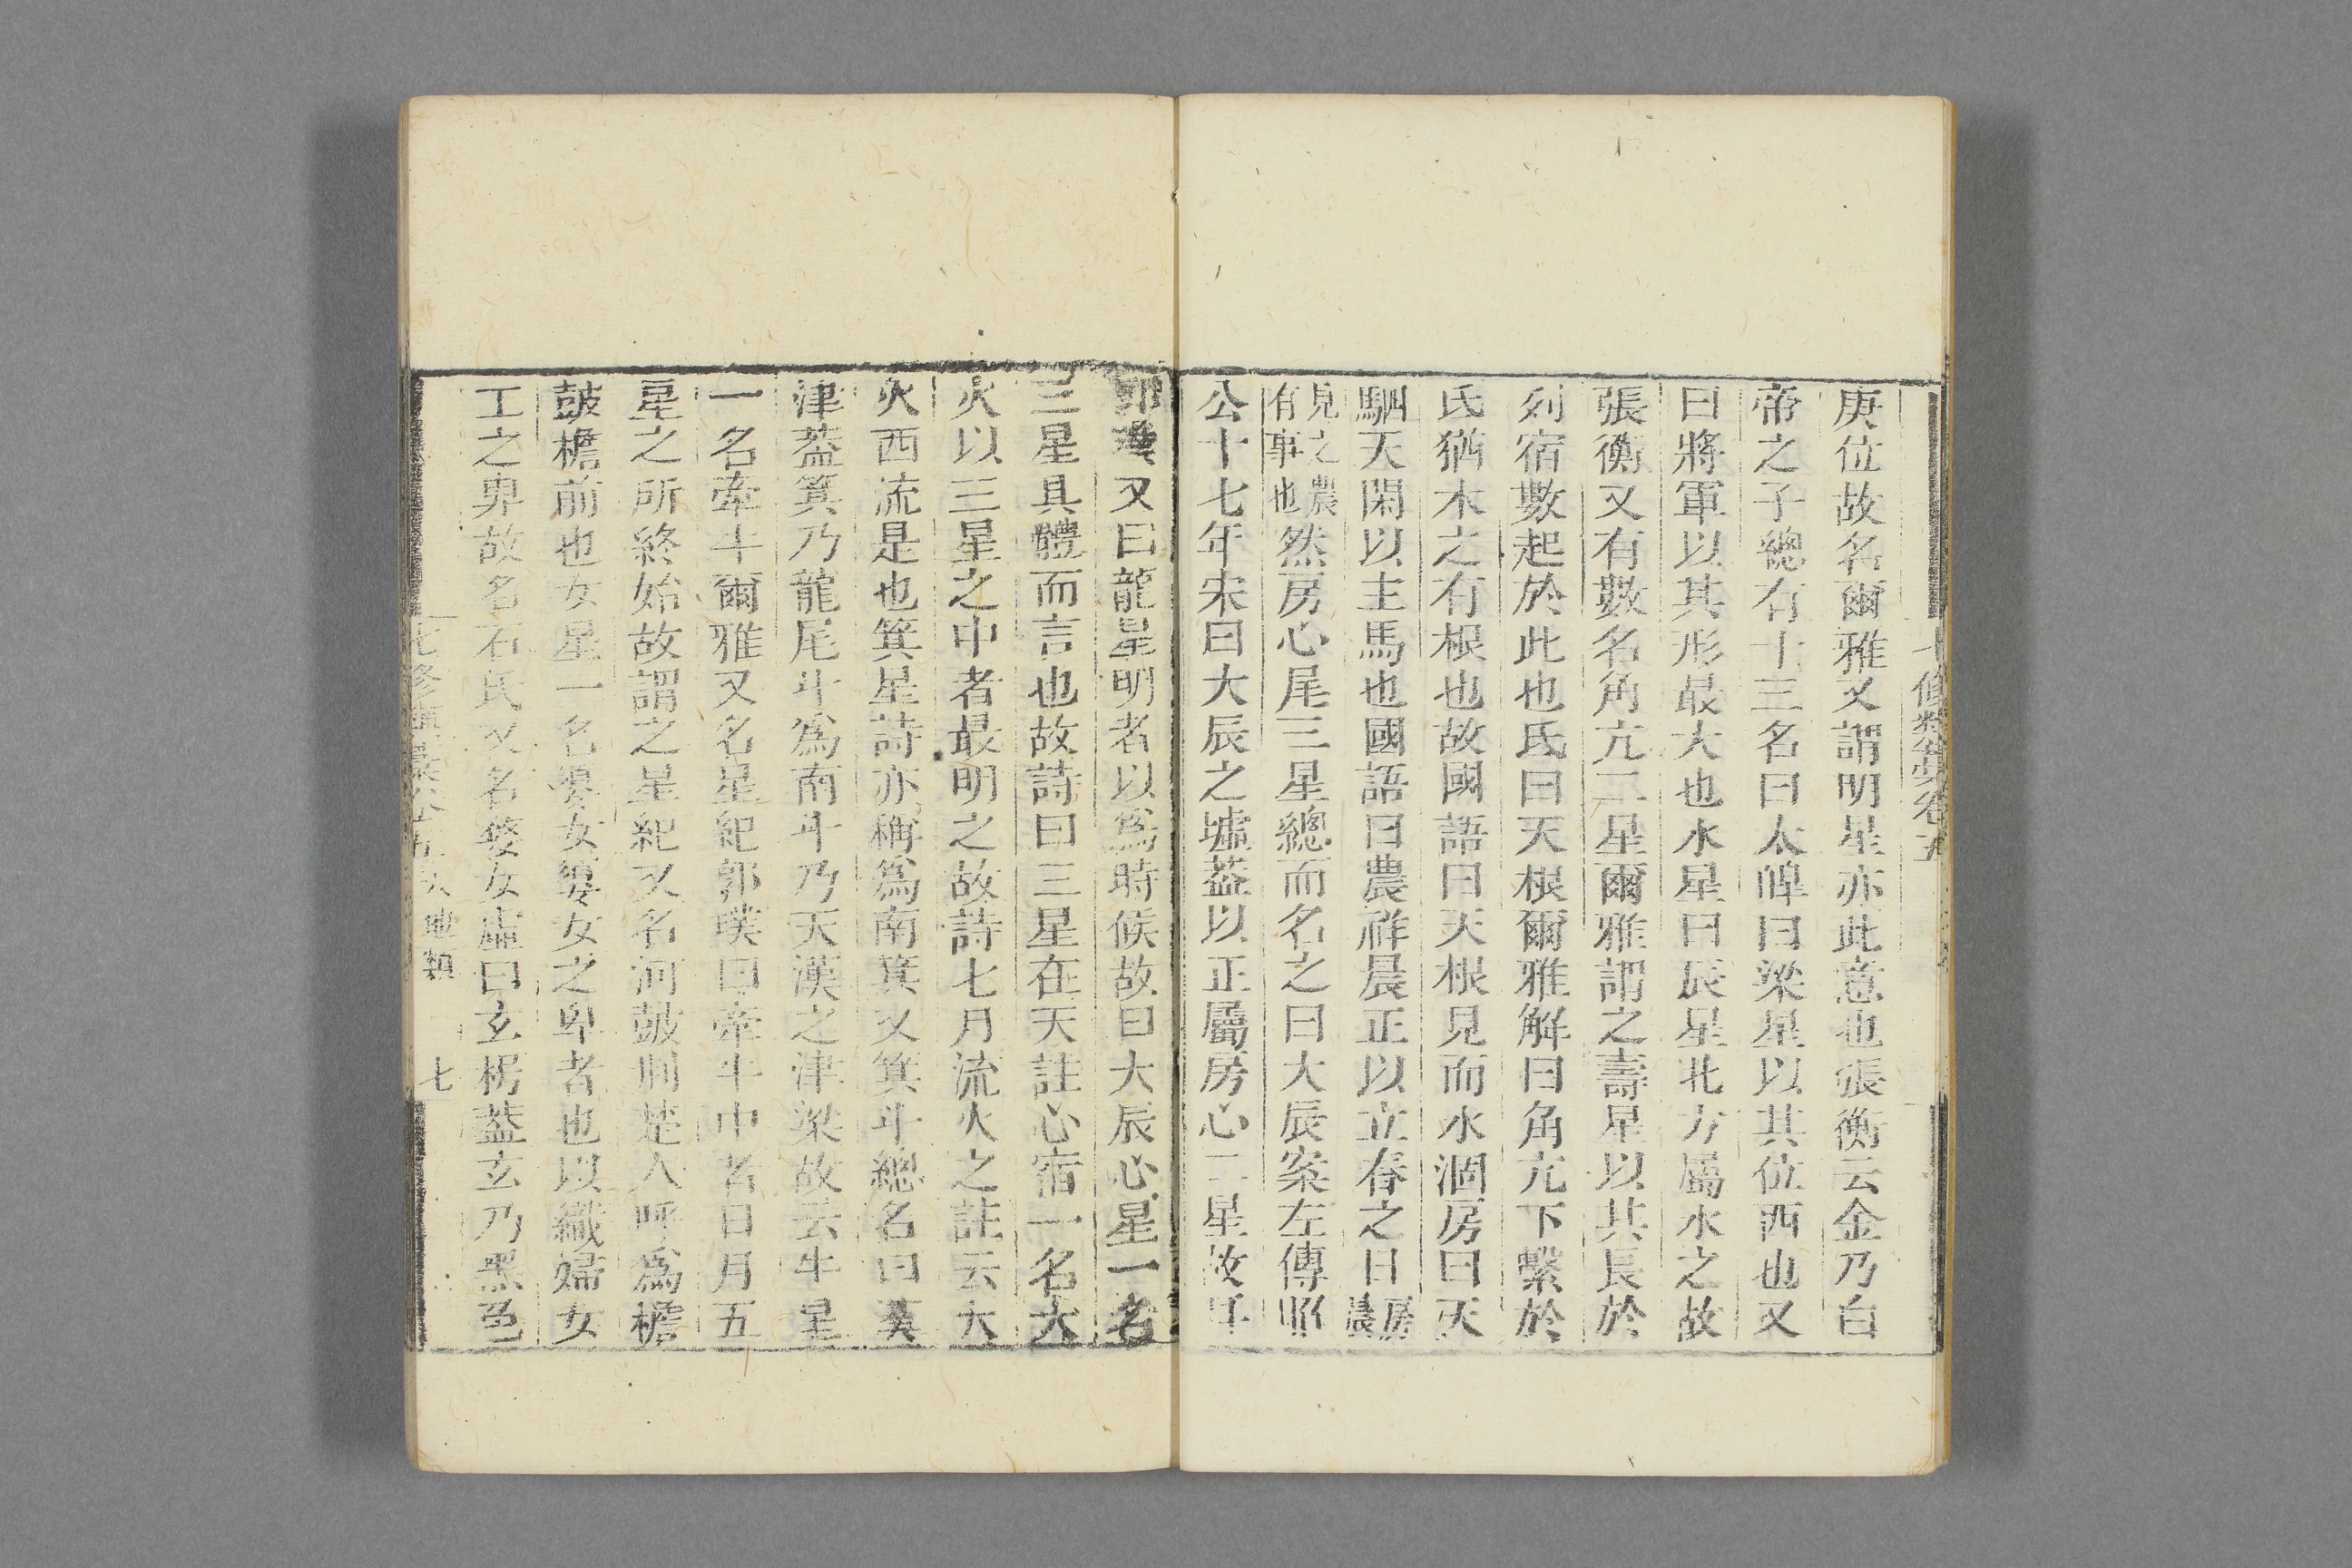 七修類藁卷五
庚位故名爾雅又謂明星亦此意也張衡云金乃白
帝之子總有十三名曰太皥曰梁星以其位西也又
曰將軍以其形最大也水星曰辰星北方屬水之故
張衡又有數名角亢二星爾雅謂之壽星以其長於
列宿數起於此也氐曰天根爾雅解曰角亢下繫於
氐猶木之有根也故國語曰天根見而水涸房曰天
駟天閑以主馬也國語曰農祥晨正以立春之日房晨
見之農有事也然房心尾三星總而名之曰大辰案左傳昭
公十七年宋曰大辰之墟葢以正屬房心二星故
郭璞又曰龍星明者以爲時候故曰大辰心星一名
三星具體而言也故詩曰三星在天註心宿一名大
火以三星之中者最明之故詩七月流火之註云大
火西流是也箕星詩亦稱爲南箕又箕斗總名曰
津葢箕乃龍尾斗爲南斗乃天漢之津梁故云牛星
一名牽牛爾雅又名星紀郭璞曰牽牛中者日月五
星之所終始故謂之星紀又名河鼓則楚人呼爲檐
鼓檐前也女星一名婺女嫛女之卑者也以織婦女
工之卑故名石氏又名婺女虛曰玄枵葢玄乃黑色
七修類藁卷五天地類 七